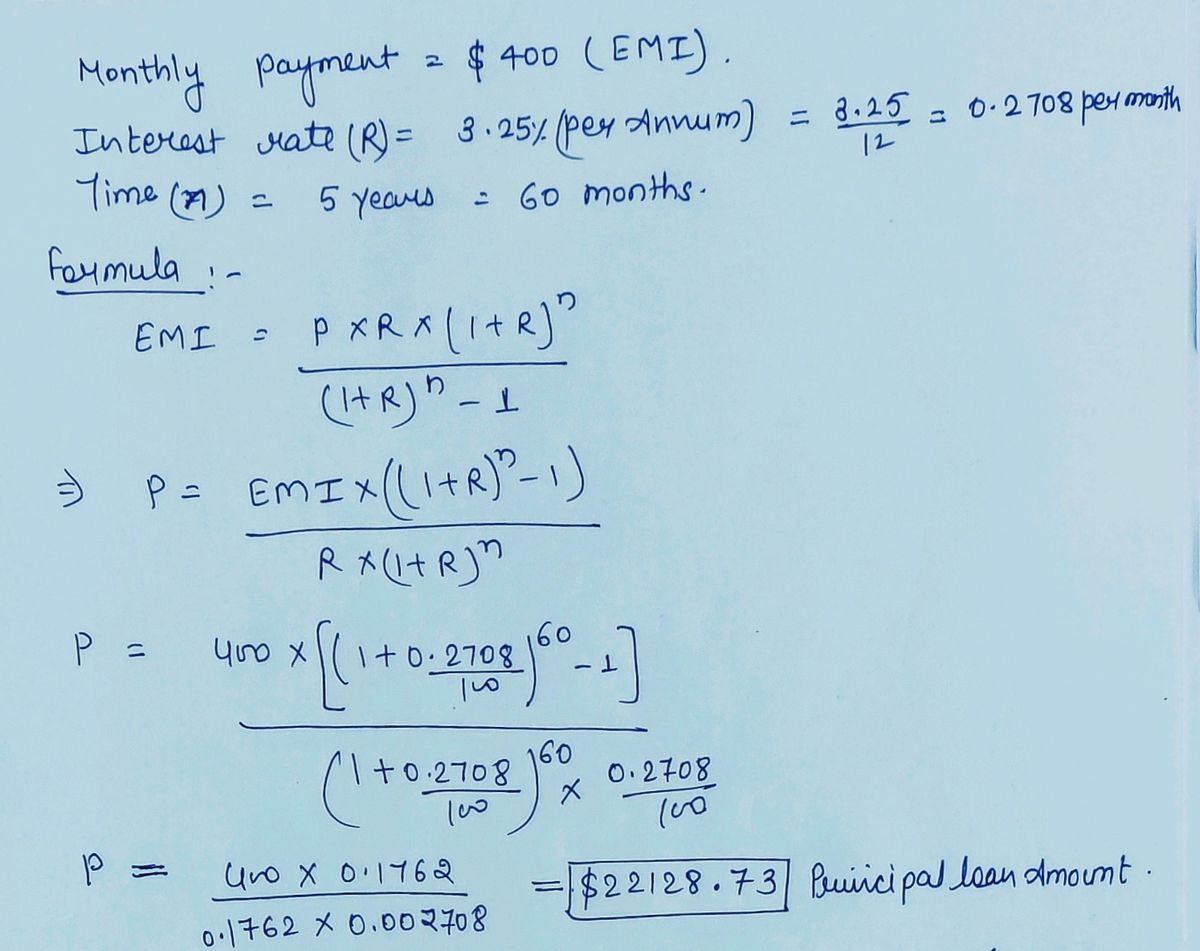 Monthly payment = $ 400 (EMI).
Interest rate (R) = 3.25% (per Annum) = 3.25/12 = 0.2708 per month
Time (n) = 5 years = 60 months.
Formula :-
EMI = P × R × (1 + R)^n
(1 + R)^n - 1
⇒ P = EMI × ((1 + R)^n - 1)
R × (1 + R)^n
P = 400 × [(1 + 0.2708/100)^60 - 1]
(1 + 0.2708/100)^60 × 0.2708/100
P = 400 × 0.1762 = $22128.73 Principal loan Amount.
0.1762 × 0.002708